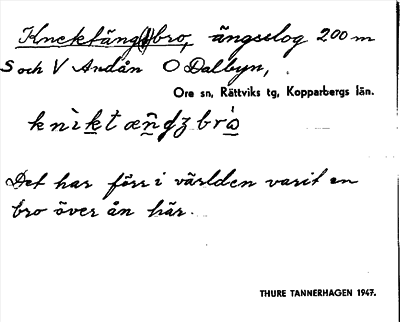 Knektängsbro, ängsslog 200 m
S och V Andån O Dalbyn,
Ore sn, Rättviks tg, Kopparbergs län.
Det har förr i världen varit en
bro över ån här.
THURE TANNERHAGEN 1947.